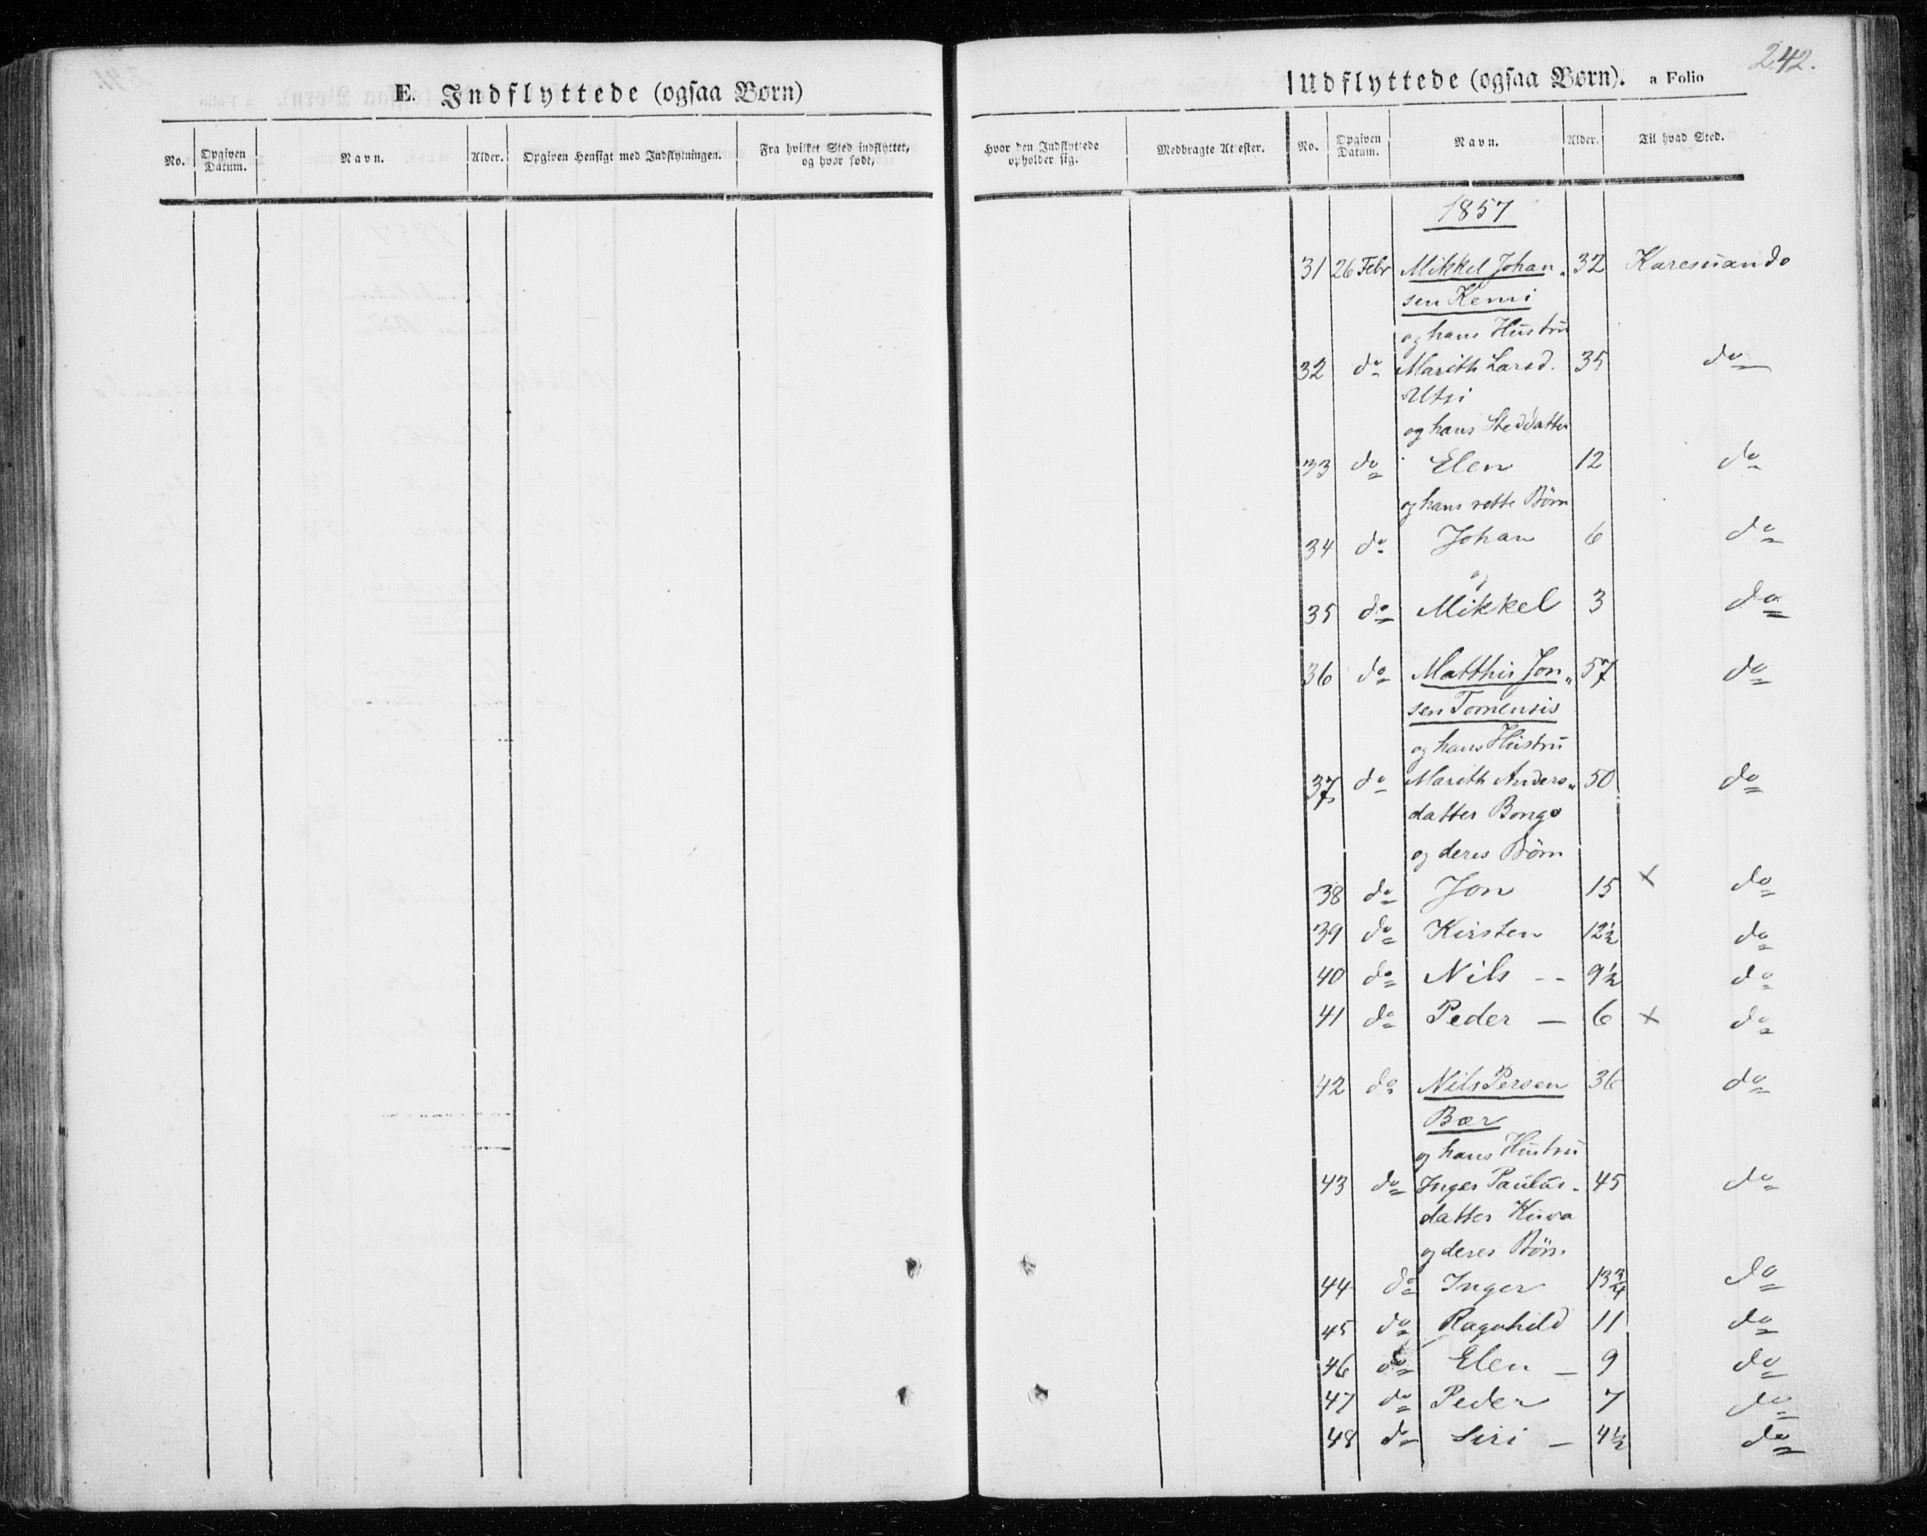 242.
E. Indflyttede (ogsaa Børn)
Udflyttede (ogsaa Børn). a Folio
No. Opgiven Datum. Navn. Alder. Opgiven Hensigt med Indflytningen. Fra hvilket Sted indflyttet, og hvor født,
Hvor den Indflyttede opholder sig. Medbragte Attester. No. Opgiven Datum. Navn. Alder. Til hvad Sted.
1857
31 26 Febr Mikkel Johan„ 32 Karesuando
sen Kemi
og hans Hustru
32 do Marith Larsd. 35 do
Utsi
og hans Steddatter
33 do Elen 12 do
og hans rette Børn
34 do Johan 6 do
og
35 do Mikkel 3 do
36 do Matthis Jon„ 57 do
sen Tornensis
og hans Hustru
37 do Marith Anders„ 50 do
datter Bongo
og deres Børn
38 do Jon 15 x do
39 do Kirsten 12½ do
40 do Nils -- 9½ do
41 do Peder — 6 x do
42 do Nils Persen 36 do
Bær
og hans Hustru
43 do Inger Paulus- 45 do
datter Kuva
og deres Børn
44 do Inger 13¾ do
45 do Ragnhild 11 do
46 do Elen — 9 do
47 do Peder 7 do
48 do Siri — 4½ do